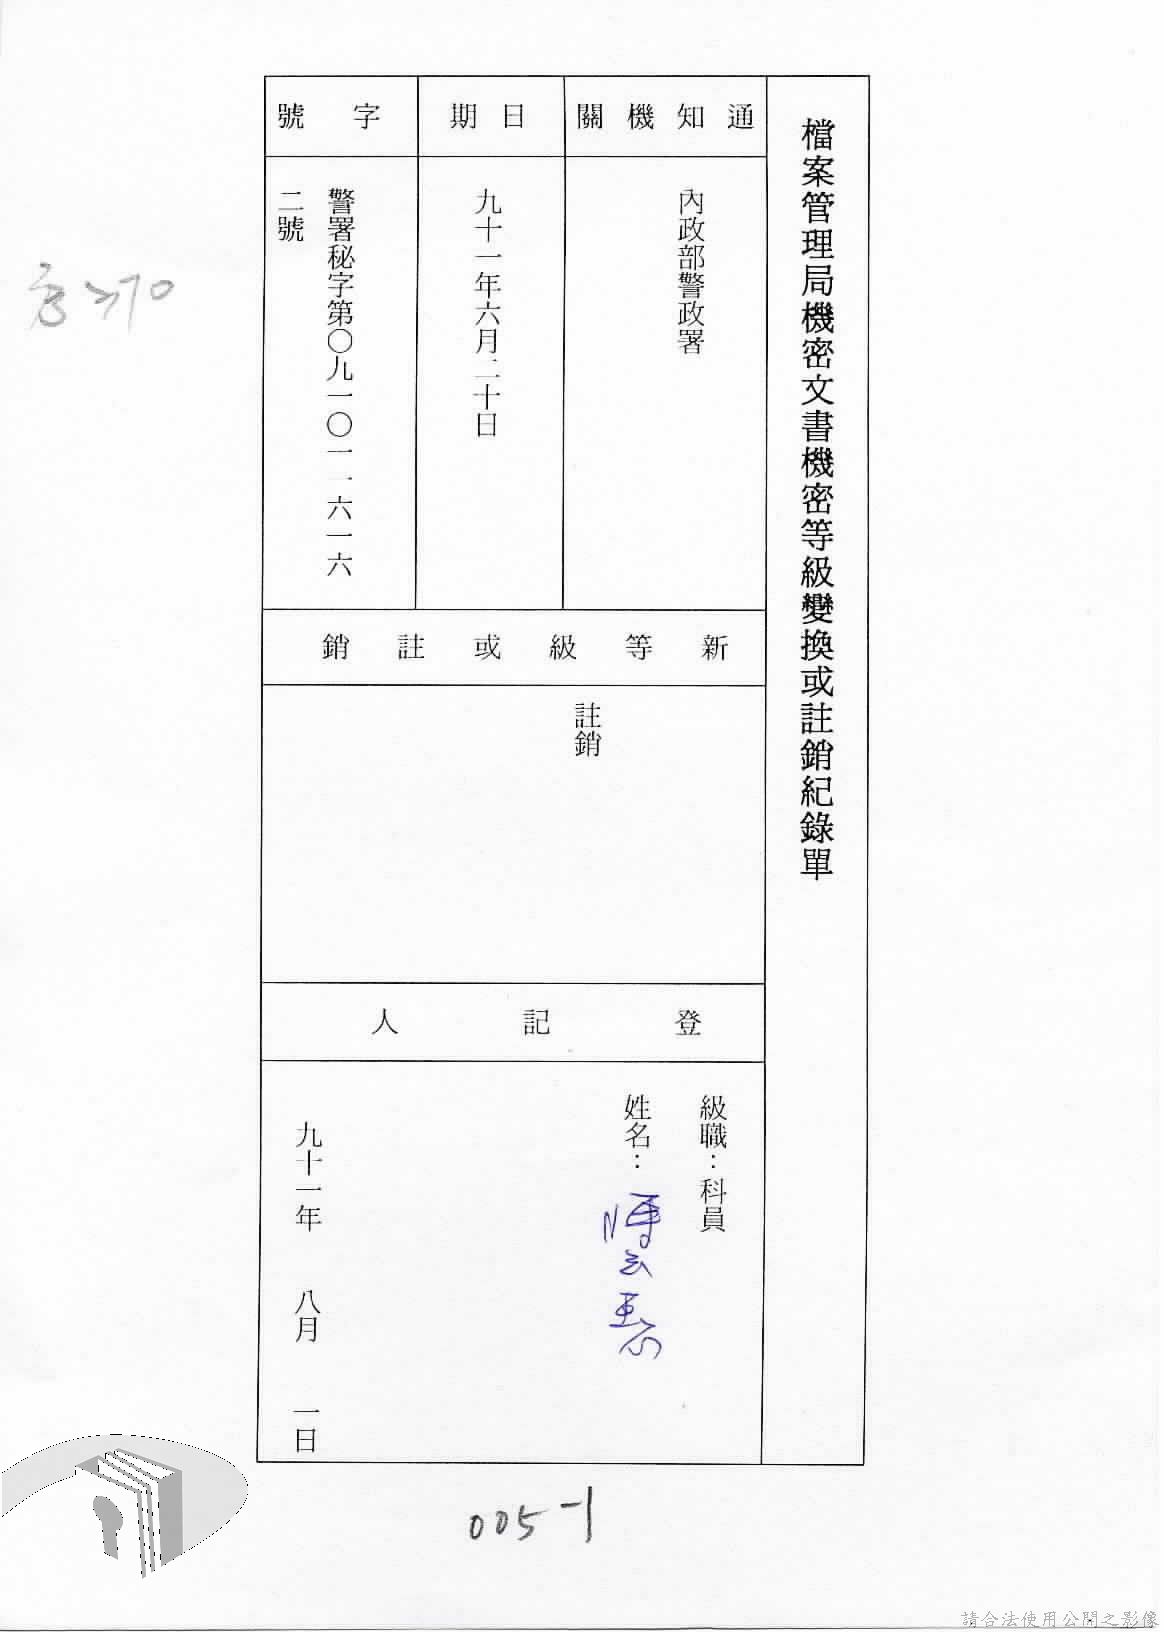 檔案管理局機密文書機密等級變換或註銷紀錄單
通知機關
內政部警政署
日期
九十一年六月二十日
字號
警署秘字第〇九一〇一一六一六
二號
新等級或註銷
註銷
登記人
級職：科員
姓名：
九十一年 八月 一日
005-1
請合法使用公開之影像